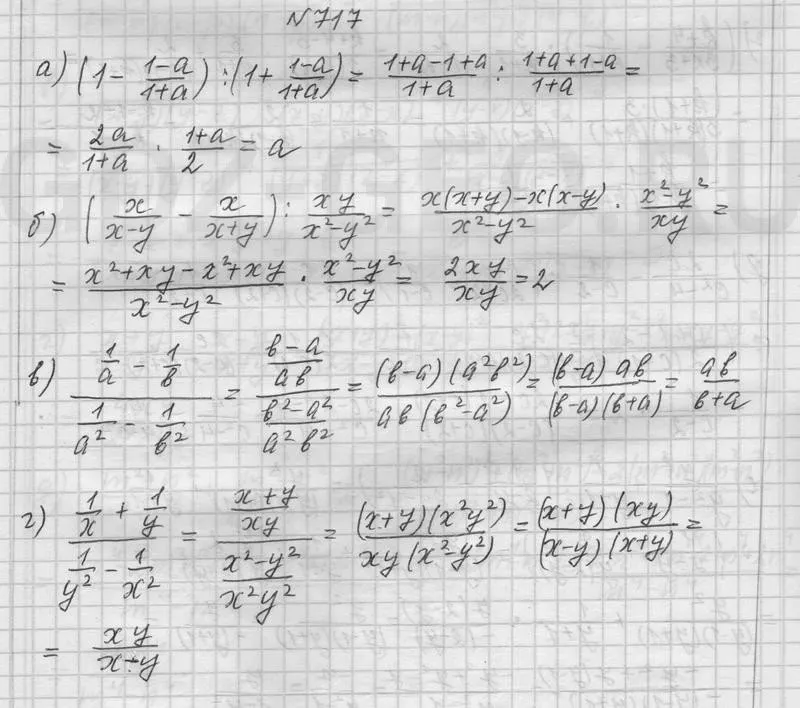 №717
а) (1 - (1-a)/(1+a)) : (1 + (1-a)/(1+a)) = (1+a-1+a)/(1+a) : (1+a+1-a)/(1+a) =
= 2a/(1+a) · (1+a)/2 = a
б) (x/(x-y) - x/(x+y)) : xy/(x²-y²) = (x(x+y)-x(x-y))/(x²-y²) · (x²-y²)/(xy) =
= (x²+xy-x²+xy)/(x²-y²) · (x²-y²)/(xy) = 2xy/(xy) = 2
в) (1/a - 1/b)/(1/a² - 1/b²) = ((b-a)/(ab))/((b²-a²)/(a²b²)) = ((b-a)(a²b²))/(ab(b²-a²)) = ((b-a)ab)/((b-a)(b+a)) = ab/(b+a)
г) (1/x + 1/y)/(1/y² - 1/x²) = ((x+y)/(xy))/((x²-y²)/(x²y²)) = ((x+y)(x²y²))/(xy(x²-y²)) = ((x+y)(xy))/((x-y)(x+y)) =
= xy/(x-y)